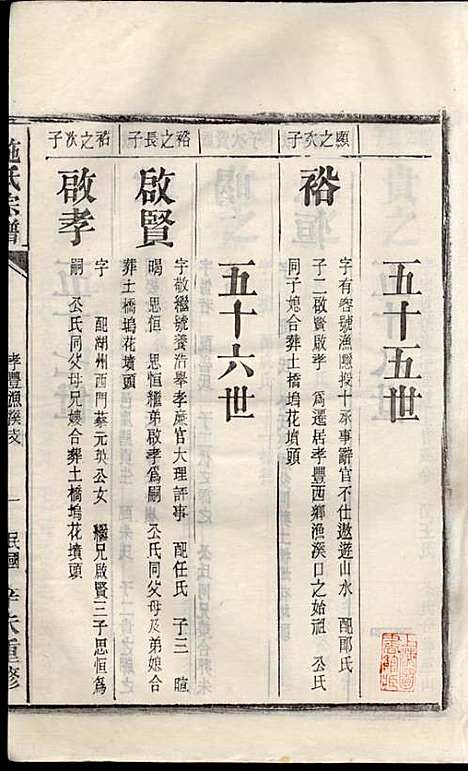 五十五世
顯之次子
裕
字有容號漁隱授十承事辭官不仕遨遊山水 配邵氏
子二啟賢啟孝 爲遷居孝豐西鄉漁溪口之始祖 公氏
同子媳合葬土橋塢花墳頭
五十六世
裕之長子
啟賢
字敬繼號養浩舉孝廉官大理評事 配任氏 子三 暄
暘 思恒 思恒繼弟啟孝爲嗣 公氏同父母及弟媳合
葬土橋塢花墳頭
裕之次子
啟孝
字 配湖州西門蔡元英公女 繼兄啟賢三子思恒爲
嗣 公氏同父母兄嫂合葬土橋塢花墳頭
施氏宗譜
孝豐漁溪支
一
民國辛未重修